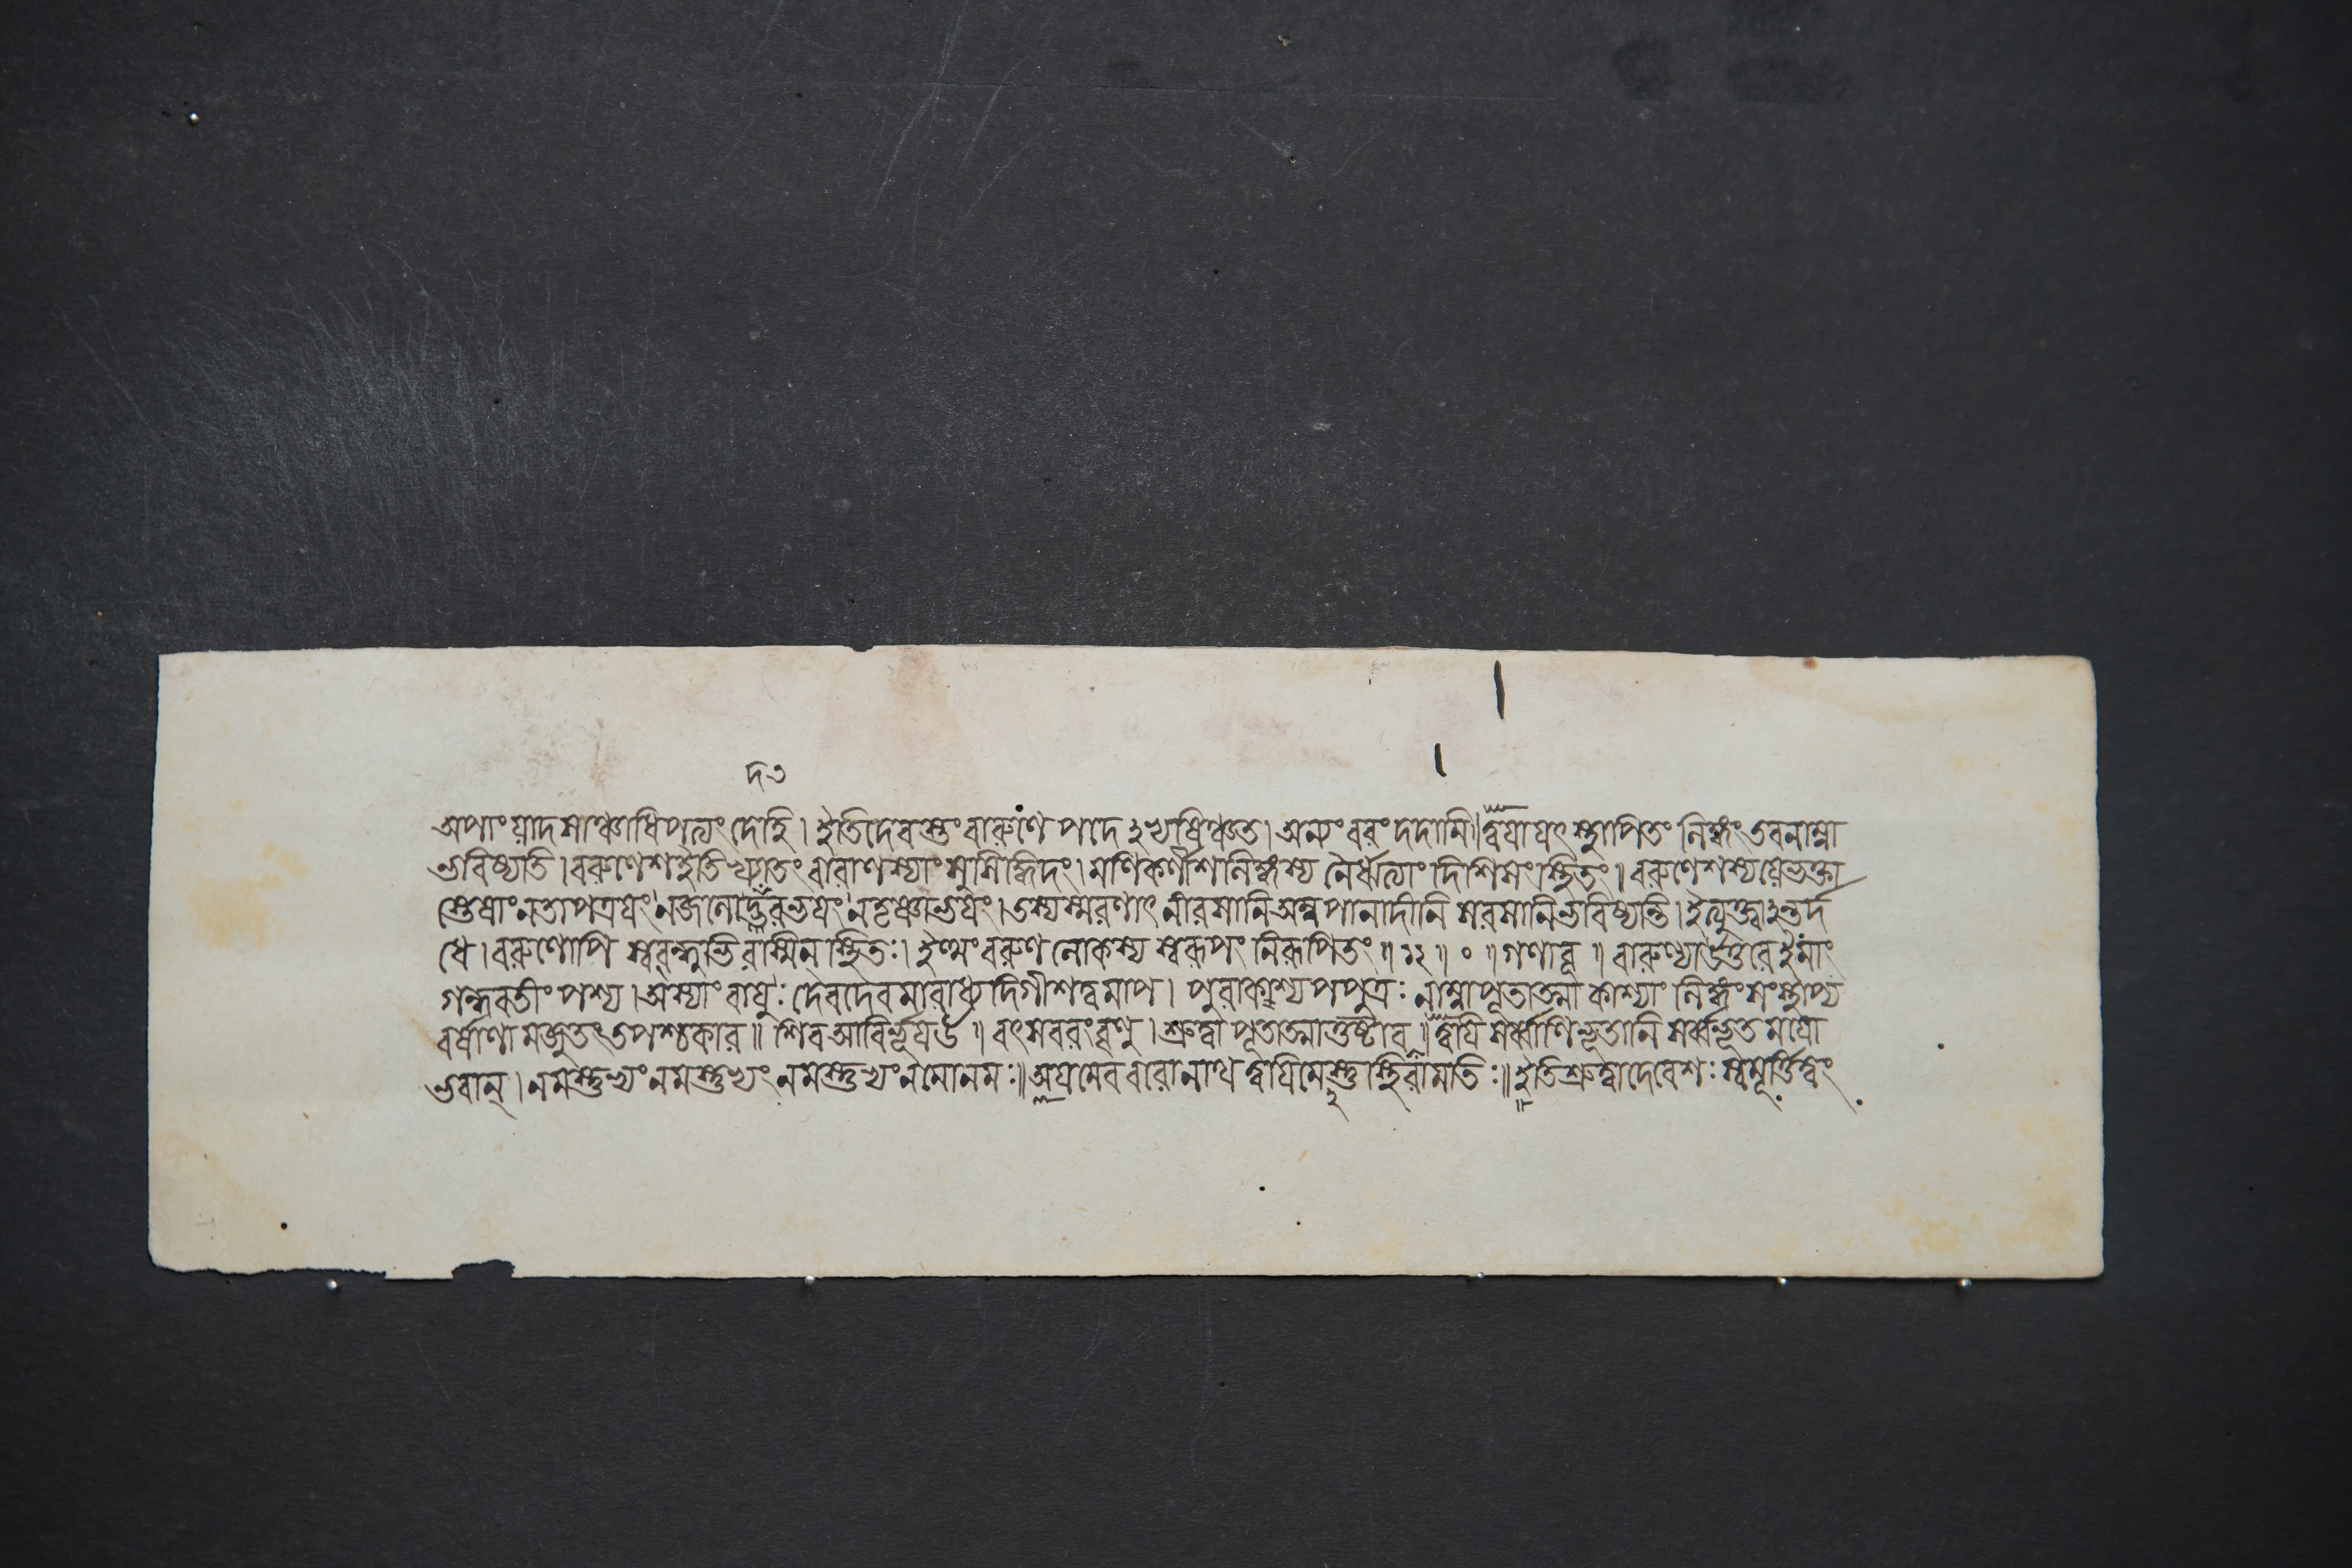 দ৩
অপাং য়াদসাঞ্চাধিপত্যং দেহি। ইতি দেবস্তং বারুণে পদে ঽভ্যষিঞ্চত। অন্যং বরং দদামি।। ত্বয়া য়ৎ স্থাপিতং লিঙ্গং তবনাম্না
ভবিষ্যতি। বরুণেশ ইতি খ্যাতং বারাণস্যাং সুসিদ্ধিদং। মণিকর্ণীশলিঙ্গস্য নৈর্ঋত্যাং দিশি সংস্থিতং॥ বরুণেশস্য য়ে ভক্তা
স্তেষাং ন তাপত্রয়ং ন জলোদ্ভবভয়ং ন তৃষ্ণাভয়ং। তস্য স্মরণাৎ নীরসানি অন্নপানাদীনি সরসানি ভবিষ্যন্তি। ইত্যুক্ত্বাঽন্তর্দ
ধে। বরুণোপি স্ববন্ধুভিরস্মিন্ স্থিতঃ। ইত্থং বরুণলোকস্য স্বরূপং নিরূপিতং ॥ ১২ ॥ ০ ॥ গণাবূ ॥ বারুণ্যা উত্তরে ইমাং
গন্ধবতীং পশ্য। অস্যাং বায়ুঃ দেবদেবমারাধ্য দিগীশত্বমাপ। পুরা কশ্যপপুত্রঃ নাম্না পূতাত্মা কাশ্যাং লিঙ্গং সংস্থাপ্য
বর্ষাণামজুতং তপশ্চকার॥ শিব আবির্ভূয় উ ॥ বৎস বরং বৃণু। শ্রুত্বা পূতাত্মা তুষ্টাব ॥ ত্বয়ি সর্ব্বাণি ভূতানি সর্ব্বভূতময়ো
ভবান্। নমস্তুভ্যং নমস্তুভ্যং নমস্তুভ্যং নমোনমঃ॥ অয়মেব বরো নাথ ত্বয়ি মেস্তু স্থিরা মতিঃ॥ ইতি শ্রুত্বা দেবেশঃ স্বমূর্ত্তিত্বং